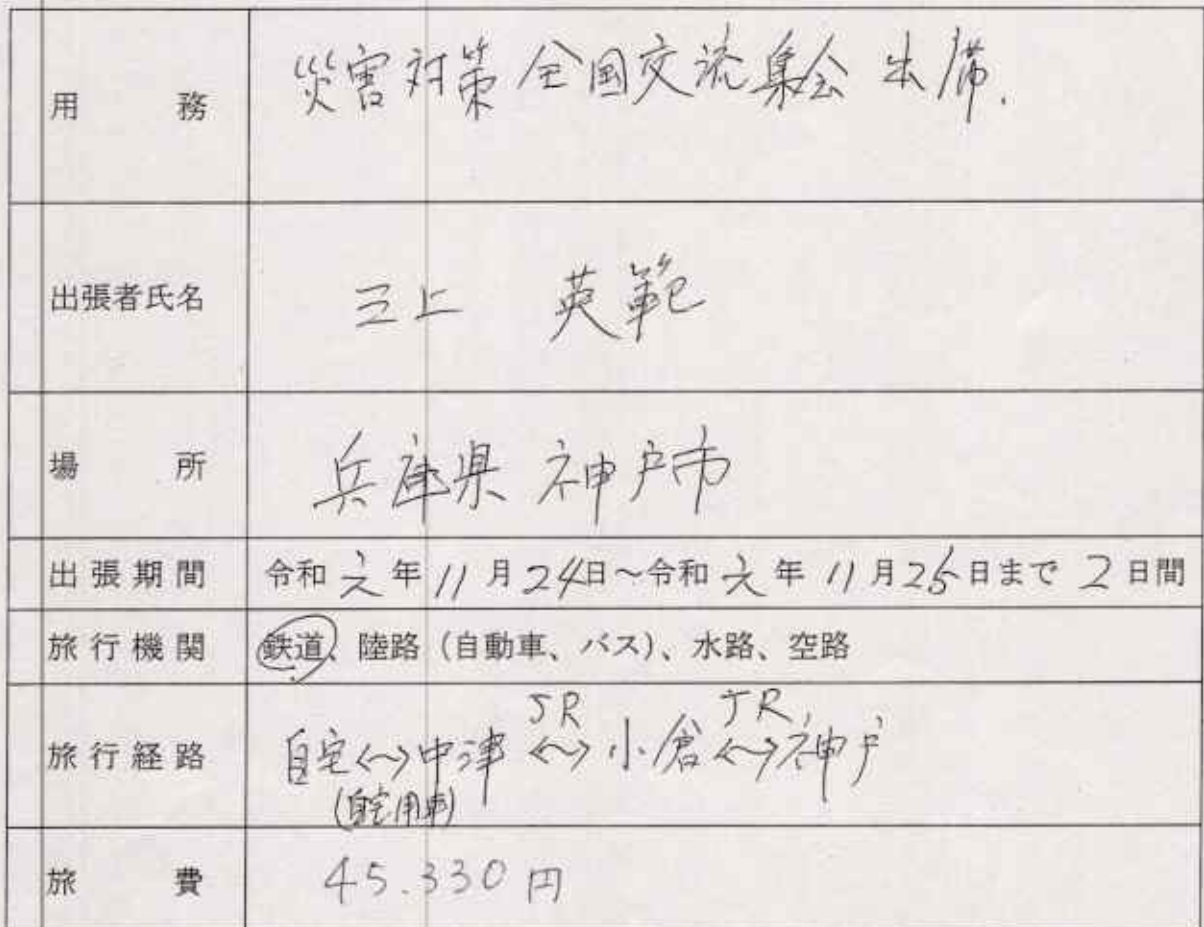 用務 災害対策全国交流集会 出席.
出張者氏名 三上 英範
場所 兵庫県 神戸市
出張期間 令和 元 年 11 月 24日～令和 元 年 11 月 25 日まで 2 日間
旅行機関 鉄道、陸路（自動車、バス）、水路、空路
JR JR
旅行経路 自宅<~>中津<~>小倉<~>神戸
旅費 45.330 円